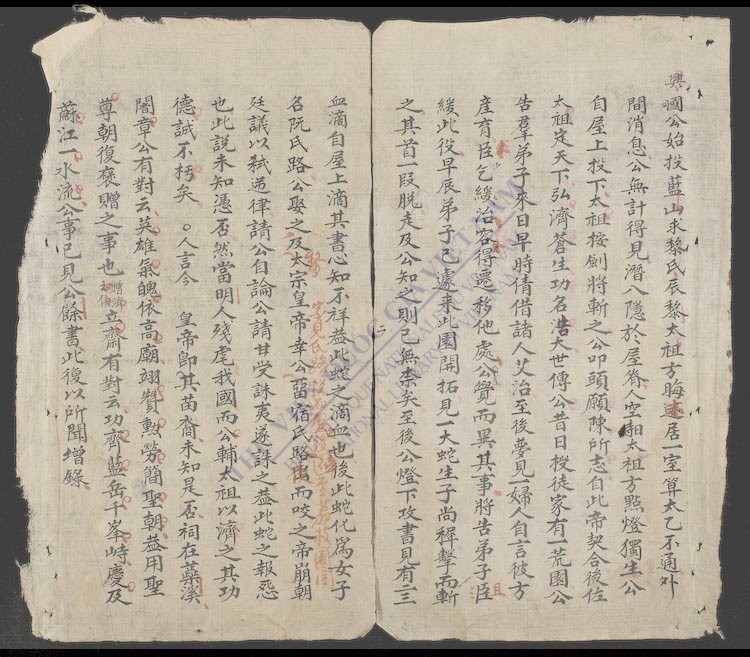 興國公始投藍山求黎氏辰黎太祖方晦迹居一室算太乙不通外
間消息公無計得見潛入隱於屋脊人空厢太祖方點燈獨坐公
自屋上投下太祖按劍將斬之公叩頭願陳所志自此帝契合後佐
太祖定天下弘濟蒼生功名浩大世傳公昔日授徒家有一荒園公
告羣弟子來日早時倩借諸人艾治至後夢見一婦人自言彼方
産育臣乞緩治容得遷移他處公覺而異其事將告弟子臣
緩此役早辰弟子已遽來此園開拓見一大蛇生子尚稺擊而斬
之其首一段脫走及公知之則已無柰矣至後公燈下攻書見有二三
血滴自屋上滴其書心知不祥葢此蛇之滴血也後此蛇化爲女子
名阮氏路公娶之及太宗皇帝幸公畱宿氏路出而咬之帝崩朝
廷議以弒逆律請公自論公請甘受誅夷遂誅之葢此蛇之報惡
也此說未知憑否然當明人殘虐我國而公輔太祖以濟之其功
德誠不朽矣 人言今 皇帝卽其苗裔未知是否祠在蘂溪
闇章公有對云英雄氣魄依高廟翊贊勲勞簡聖朝葢用聖
尊朝復褒贈之事也 立齋有對云功齊藍岳千峯峙慶及
蘇江一水流公事已見公餘書此復以所聞增錄
二
BIBLIOTHÈQUE NATIONALE DU VIETNAM
NATIONAL LIBRARY OF VIETNAM